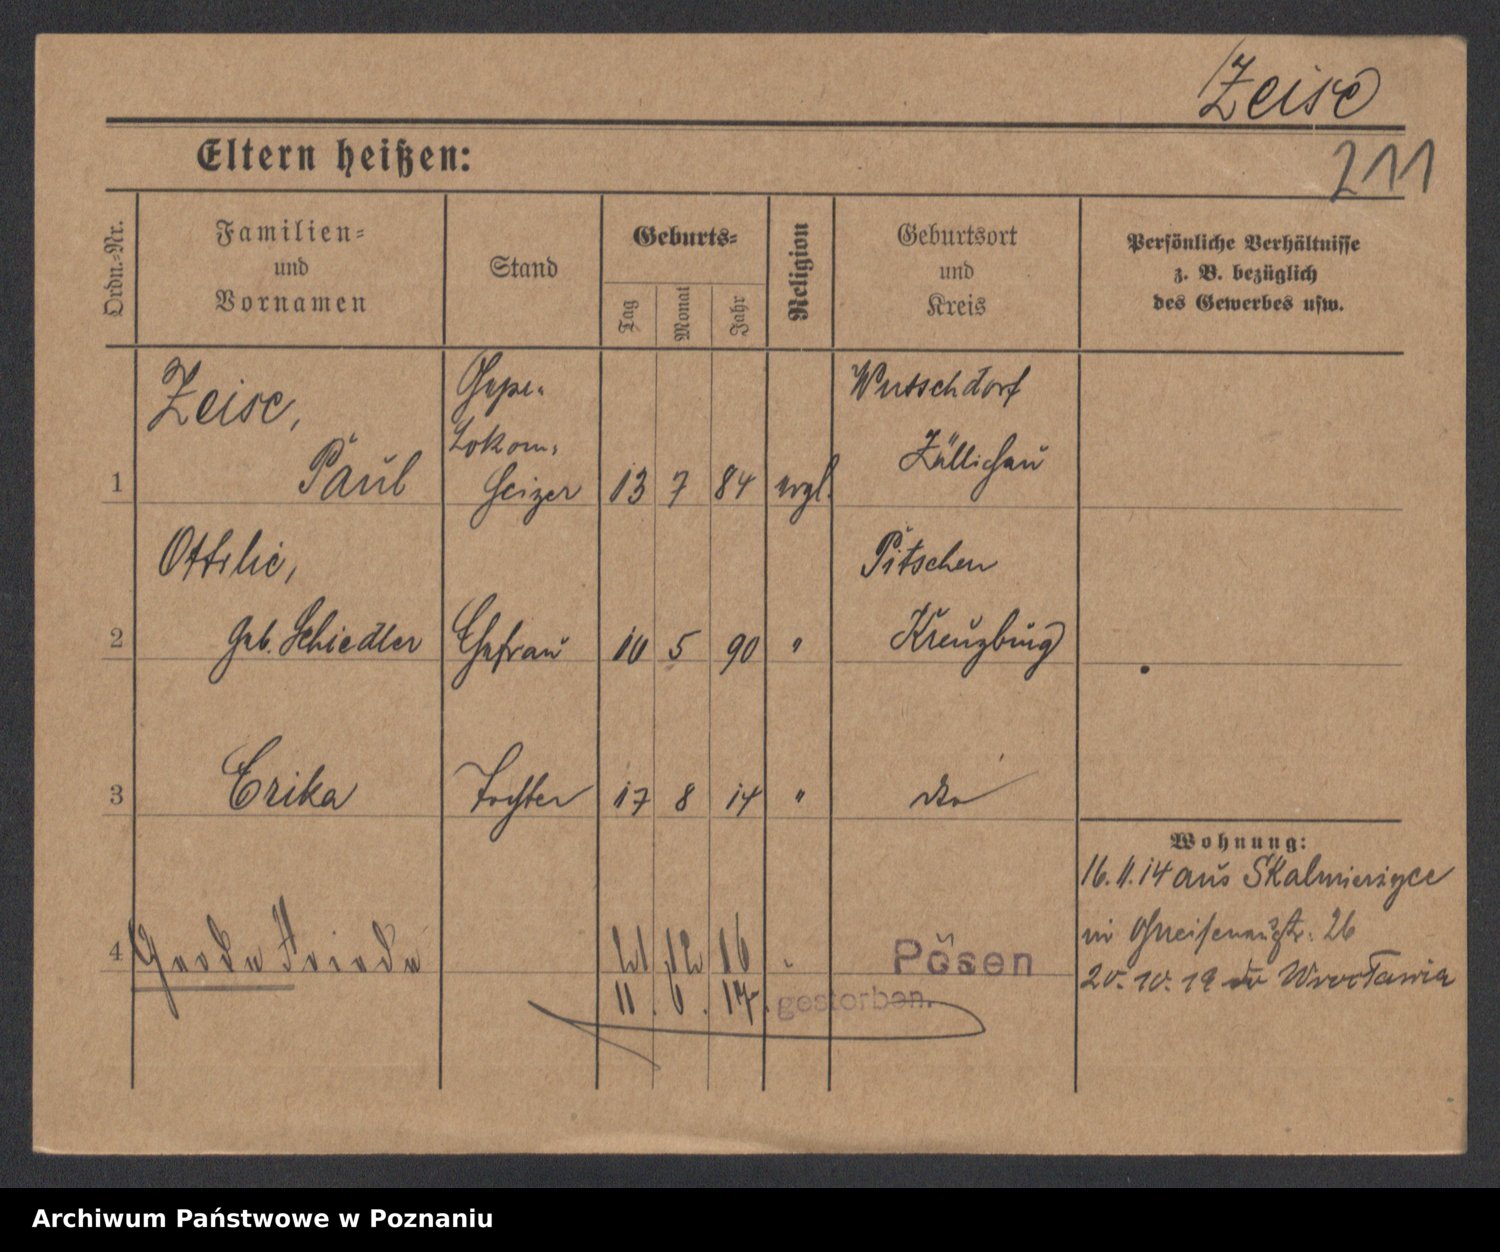 Zeise
211
Eltern heißen:
Ordn.-Nr.
Familien-
und
Vornamen
Stand
Geburts-
Tag
Monat
Jahr
Religion
Geburtsort
und
Kreis
Persönliche Verhältnisse
z. B. bezüglich
des Gewerbes usw.
1
Zeise,
Paul
Gepr.
Lokom.
Heizer
13 7 84 evgl.
Wutschdorf
Züllichau
2
Ottilie,
geb. Schiedler
Ehefrau
10 5 90 "
Pitschen
Kreuzburg
3
Erika
Tochter
17 8 14 "
dto
Wohnung:
16. 11. 14 aus Skalmierzyce
in Gneisenaustr. 26
20. 10. 19 do Wrocławia
4
Gerda Frieda
12 16
Posen
11. 6. 17. gestorben.
Archiwum Państwowe w Poznaniu